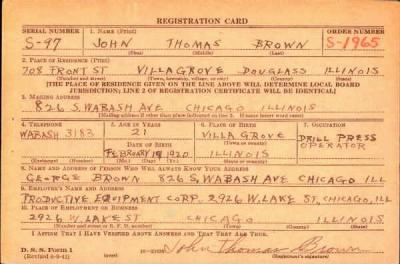 REGISTRATION CARD
SERIAL NUMBER 1. NAME (Print) ORDER NUMBER
S-97 JOHN THOMAS BROWN S-1965
(First) (Middle) (Last)
2. PLACE OF RESIDENCE (Print)
708 FRONT ST VILLA GROVE DOUGLASS ILLINOIS
(Number and street) (Town, township, village, or city) (County) (State)
[THE PLACE OF RESIDENCE GIVEN ON THE LINE ABOVE WILL DETERMINE LOCAL BOARD
JURISDICTION; LINE 2 OF REGISTRATION CERTIFICATE WILL BE IDENTICAL]
3. MAILING ADDRESS
826 S. WABASH AVE CHICAGO ILLINOIS
[Mailing address if other than place indicated on line 2. If same insert word same]
4. TELEPHONE 5. AGE IN YEARS 6. PLACE OF BIRTH 7. OCCUPATION
WABASH 3183 21 VILLA GROVE DRILL PRESS
DATE OF BIRTH OPERATOR
FEBRUARY 19 1920 ILLINOIS
(Exchange) (Number) (Mo.) (Day) (Yr.) (State or country)
8. NAME AND ADDRESS OF PERSON WHO WILL ALWAYS KNOW YOUR ADDRESS
GEORGE BROWN 826 S. WABASH AVE CHICAGO ILL
9. EMPLOYER'S NAME AND ADDRESS
PRODUCTIVE EQUIPMENT CORP. 2926 W. LAKE ST, CHICAGO, ILL
10. PLACE OF EMPLOYMENT OR BUSINESS
2926 W. LAKE ST CHICAGO ILLINOIS
(Number and street or R. F. D. number) (Town) (County) (State)
I AFFIRM THAT I HAVE VERIFIED ABOVE ANSWERS AND THAT THEY ARE TRUE.
D. S. S. Form 1 John Thomas Brown
(Revised 6-9-41) (Registrant's signature)